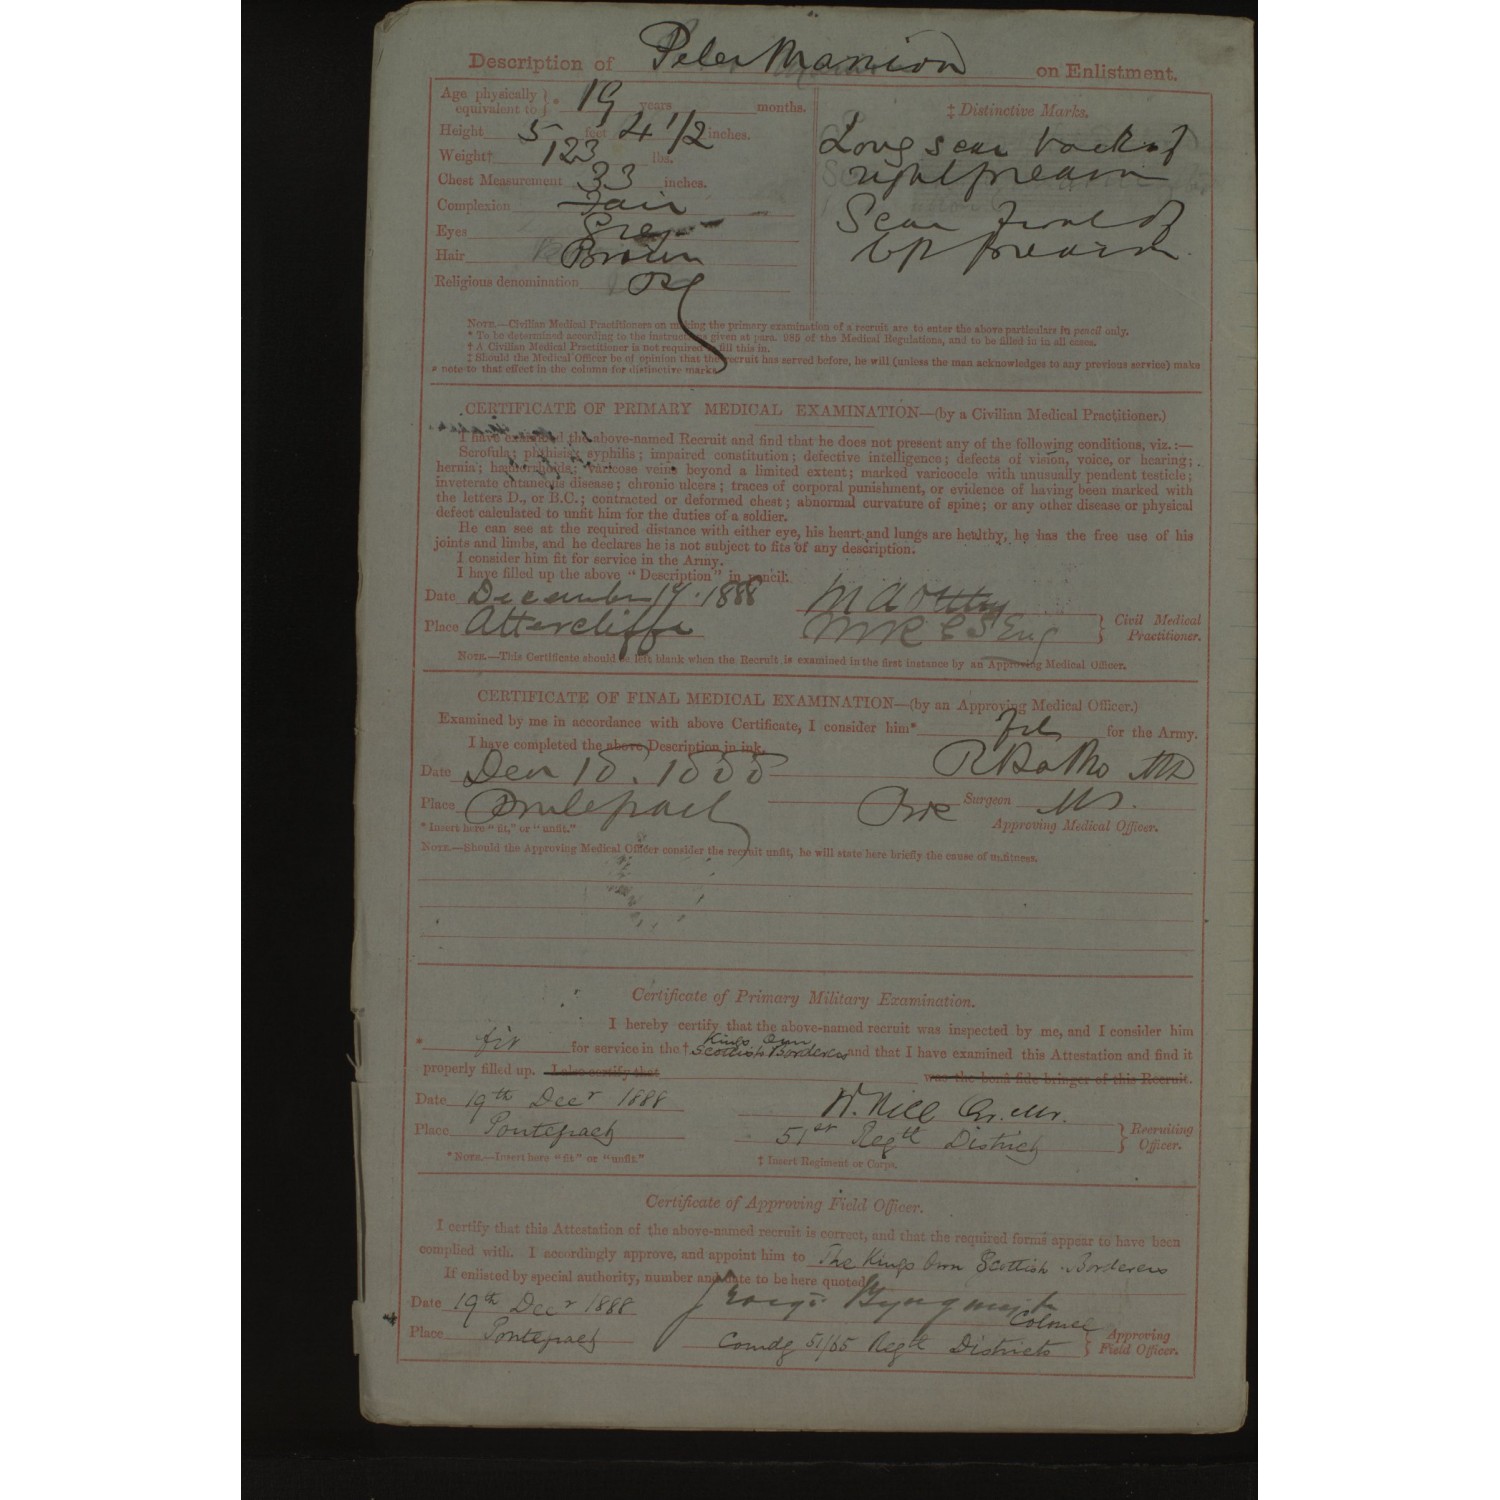 Description of Peter Manion on Enlistment.
Age physically equivalent to } * 19 years months.
Height 5 feet 4 1/2 inches.
Weight† 123 lbs.
Chest Measurement 33 inches.
Complexion Fair
Eyes Grey
Hair Brown
Religious denomination RC
‡ Distinctive Marks.
Long scar back of
right forearm
Scar front of
left forearm.
NOTE.—Civilian Medical Practitioners on making the primary examination of a recruit are to enter the above particulars in pencil only.
* To be determined according to the instructions given at para. 985 of the Medical Regulations, and to be filled in in all cases.
† A Civilian Medical Practitioner is not required to fill this in.
‡ Should the Medical Officer be of opinion that the recruit has served before, he will (unless the man acknowledges to any previous service) make
a note to that effect in the column for distinctive marks.
CERTIFICATE OF PRIMARY MEDICAL EXAMINATION—(by a Civilian Medical Practitioner.)
I have examined the above-named Recruit and find that he does not present any of the following conditions, viz.:—
Scrofula; phthisis; syphilis; impaired constitution; defective intelligence; defects of vision, voice, or hearing;
hernia; hæmorrhoids; varicose veins beyond a limited extent; marked varicocele with unusually pendent testicle;
inveterate cutaneous disease; chronic ulcers; traces of corporal punishment, or evidence of having been marked with
the letters D., or B.C.; contracted or deformed chest; abnormal curvature of spine; or any other disease or physical
defect calculated to unfit him for the duties of a soldier.
He can see at the required distance with either eye, his heart and lungs are healthy, he has the free use of his
joints and limbs, and he declares he is not subject to fits of any description.
I consider him fit for service in the Army.
I have filled up the above "Description" in pencil.
Date December 17. 1888
Place Attercliffe MRCS Eng } Civil Medical Practitioner.
NOTE.—This Certificate should be left blank when the Recruit is examined in the first instance by an Approving Medical Officer.
CERTIFICATE OF FINAL MEDICAL EXAMINATION—(by an Approving Medical Officer.)
Examined by me in accordance with above Certificate, I consider him* Fit for the Army.
I have completed the above Description in ink.
Date Decr 18. 1888
Place Pontefract Surgeon
* Insert here "fit," or "unfit." Approving Medical Officer.
NOTE.—Should the Approving Medical Officer consider the recruit unfit, he will state here briefly the cause of unfitness.
Certificate of Primary Military Examination.
I hereby certify that the above-named recruit was inspected by me, and I consider him
* fit for service in the † Kings Own Scottish Borderers and that I have examined this Attestation and find it
properly filled up. I also certify that was the bonâ fide bringer of this Recruit.
Date 19th Decr 1888 W. Nice Qr. Mr.
Place Pontefract 51st Regtl District } Recruiting Officer.
*NOTE.—Insert here "fit" or "unfit." ‡ Insert Regiment or Corps.
Certificate of Approving Field Officer.
I certify that this Attestation of the above-named recruit is correct, and that the required forms appear to have been
complied with. I accordingly approve, and appoint him to The Kings Own Scottish Borderers
If enlisted by special authority, number and date to be here quoted
Date 19th Decr 1888 George Colonel
Place Pontefract Comdg 51/65 Regtl Districts } Approving Field Officer.